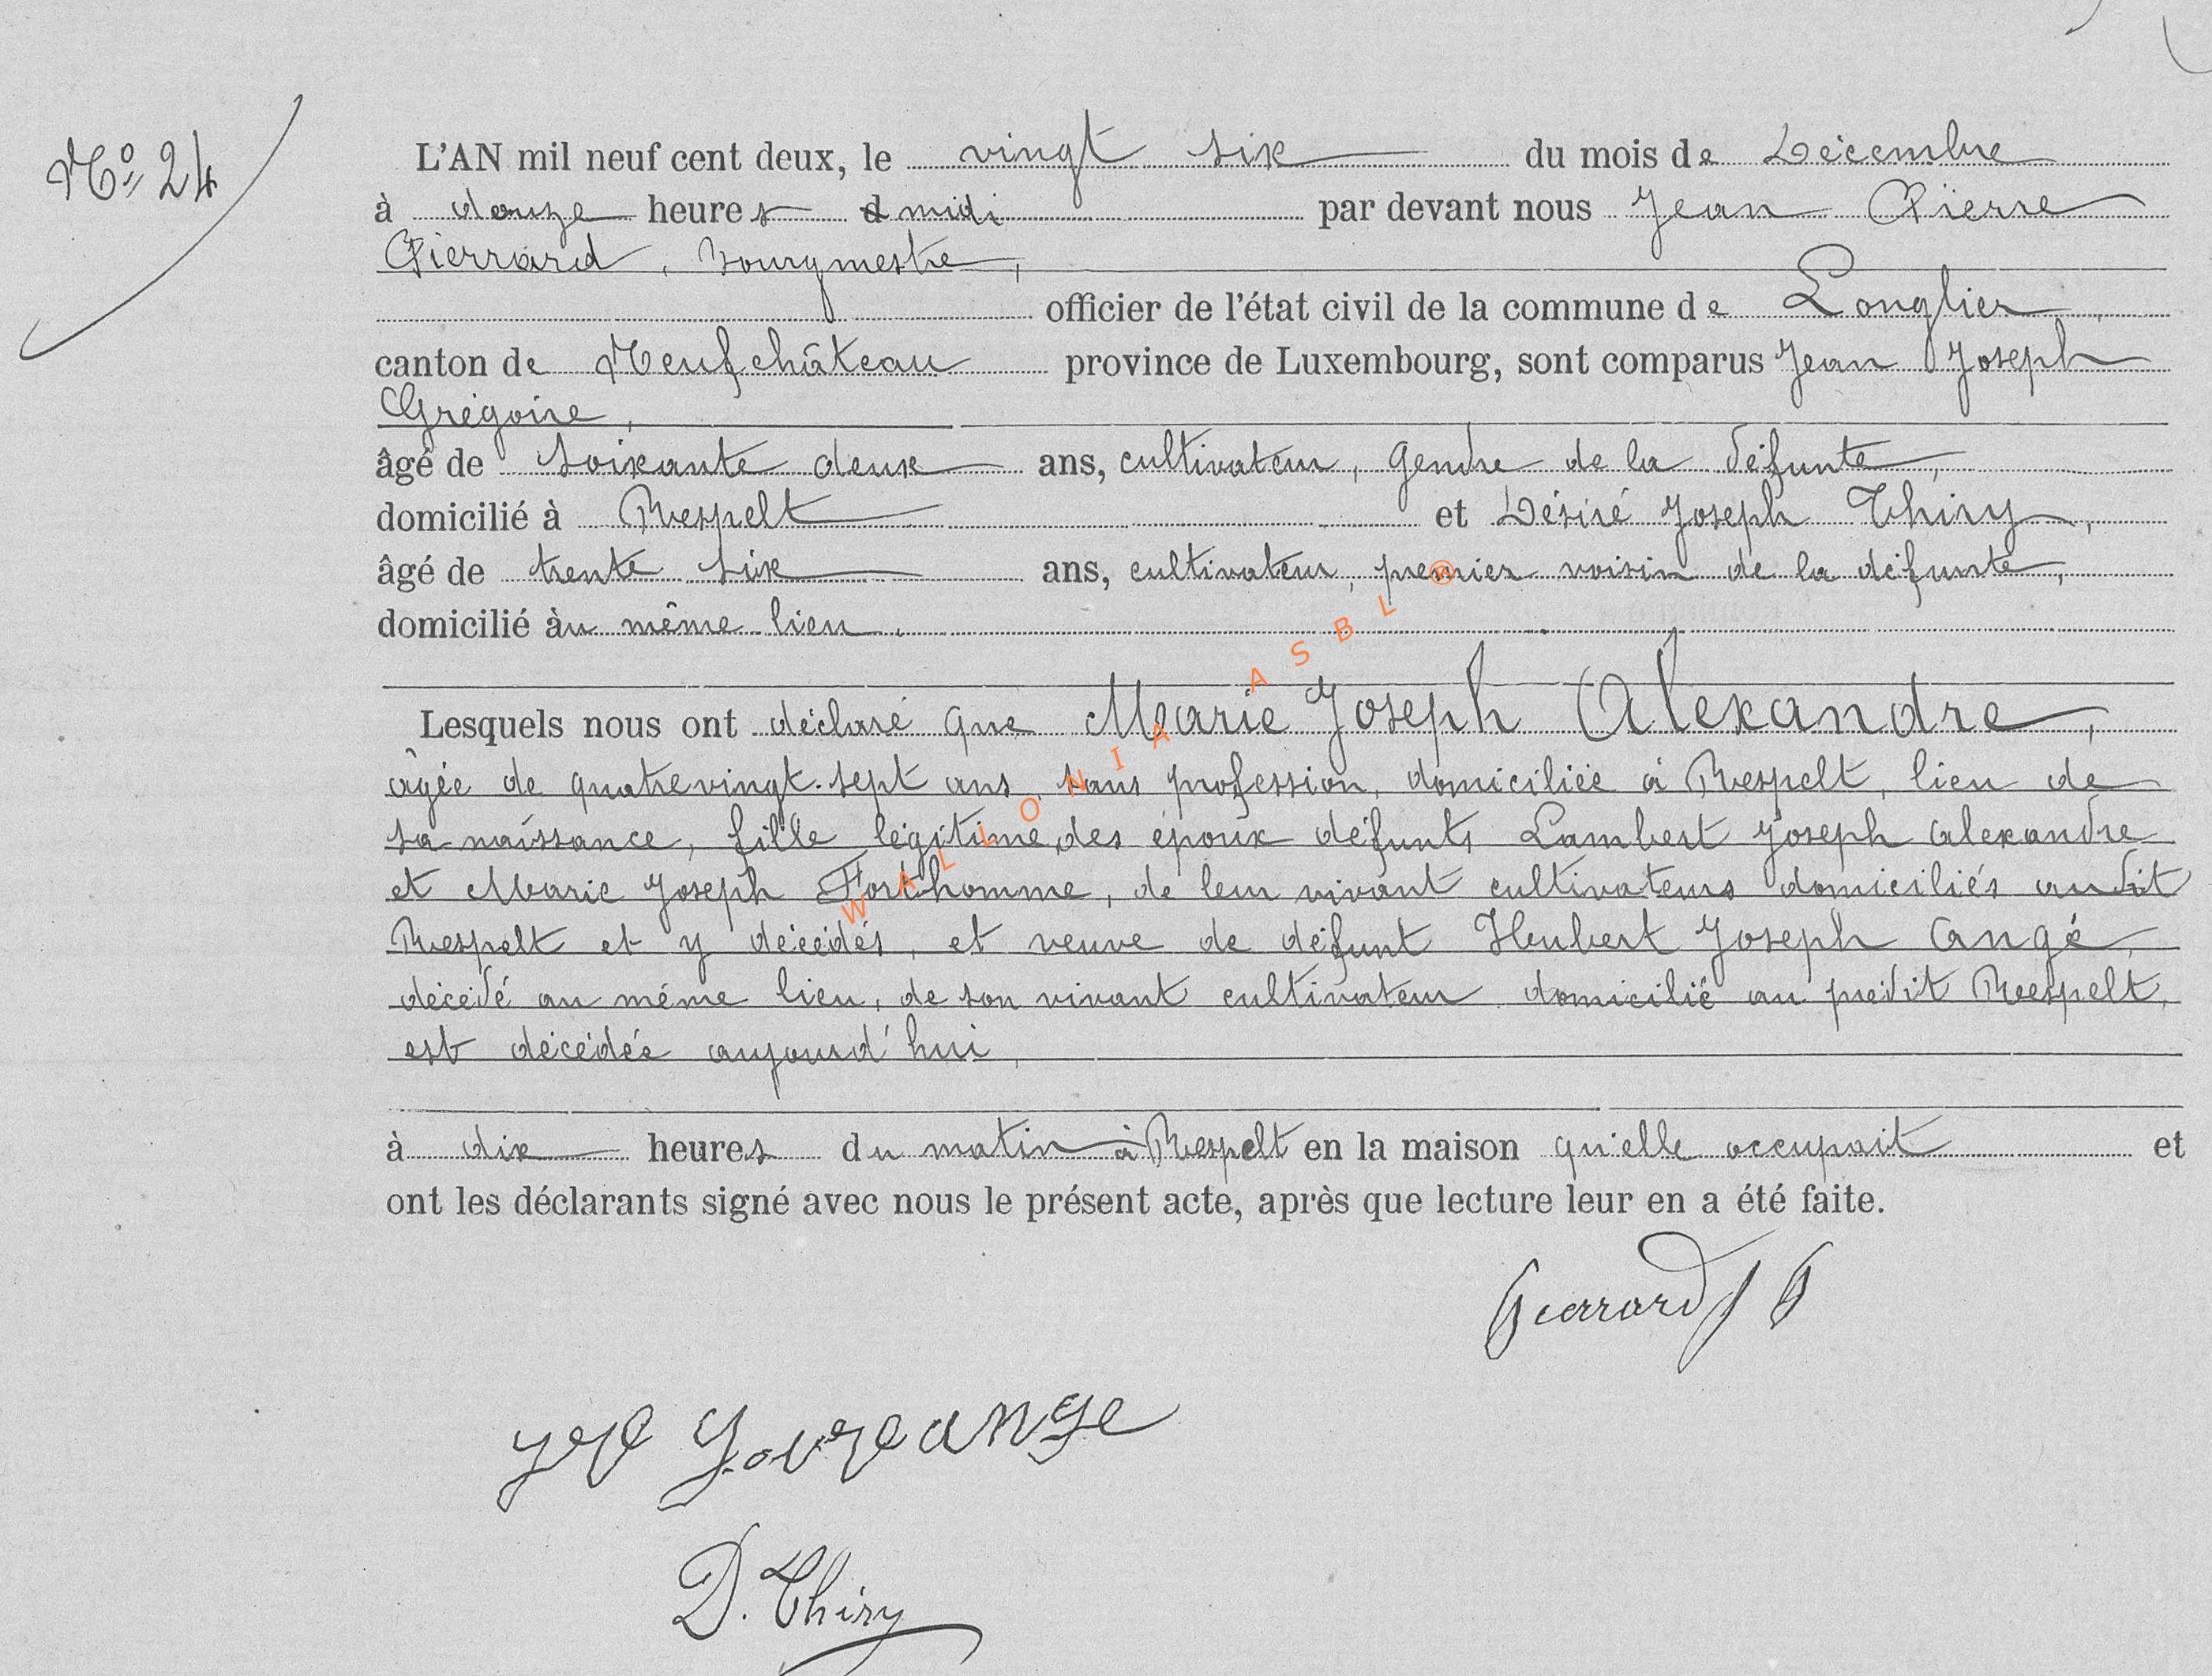 Nº 24
L'AN mil neuf cent deux, le vingt six du mois de Décembre
à douze heures d midi par devant nous Jean Pierre
Pierrard, bourgmestre,
officier de l'état civil de la commune de Longlier,
canton de Neufchâteau province de Luxembourg, sont comparus Jean Joseph
Grégoire,
âgé de soixante deux ans, cultivateur, gendre de la défunte,
domicilié à Respelt et Désiré Joseph Thiry,
âgé de trente six ans, cultivateur, premier voisin de la défunte,
domicilié àu même lieu.
Lesquels nous ont déclaré que Marie Joseph Alexandre,
âgée de quatrevingt-sept ans, sans profession, domiciliée à Respelt, lieu de
sa naissance, fille légitime des époux défunts Lambert Joseph Alexandre
et Marie Joseph Forthomme, de leur vivant cultivateurs domiciliés audit
Respelt et y décédés, et veuve de défunt Hubert Joseph Angé,
décédé au même lieu, de son vivant cultivateur domicilié au prédit Respelt,
est décédée aujourd'hui,
à dix heures du matin à Respelt en la maison qu'elle occupait et
ont les déclarants signé avec nous le présent acte, après que lecture leur en a été faite.
Pierrard J P
D. Thiry
WALLONIA ASBL ®